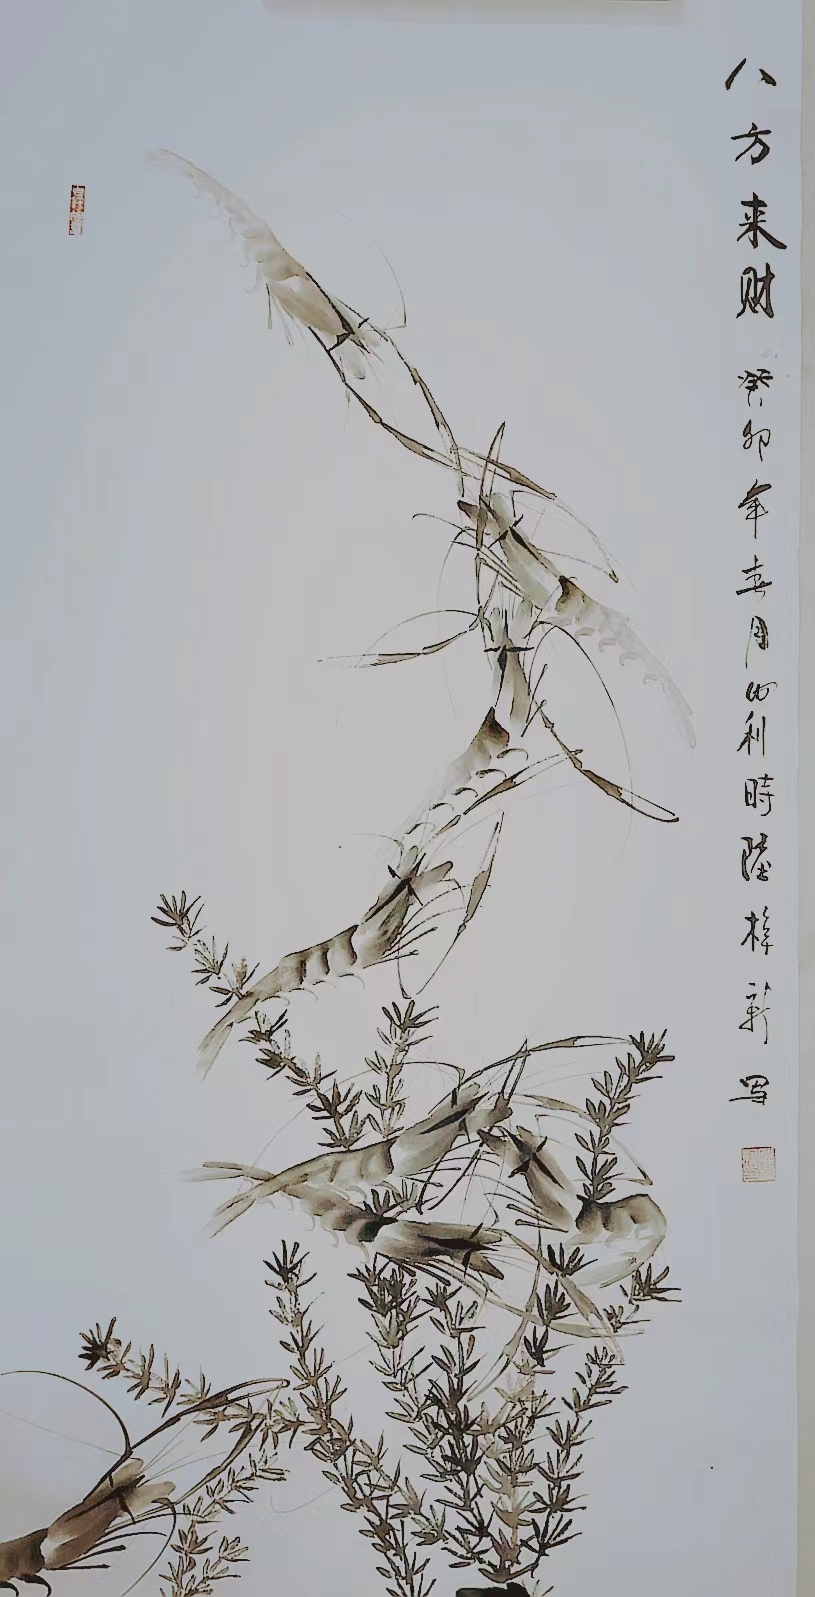 八方来财 癸卯年春月 利時 陸梓新写